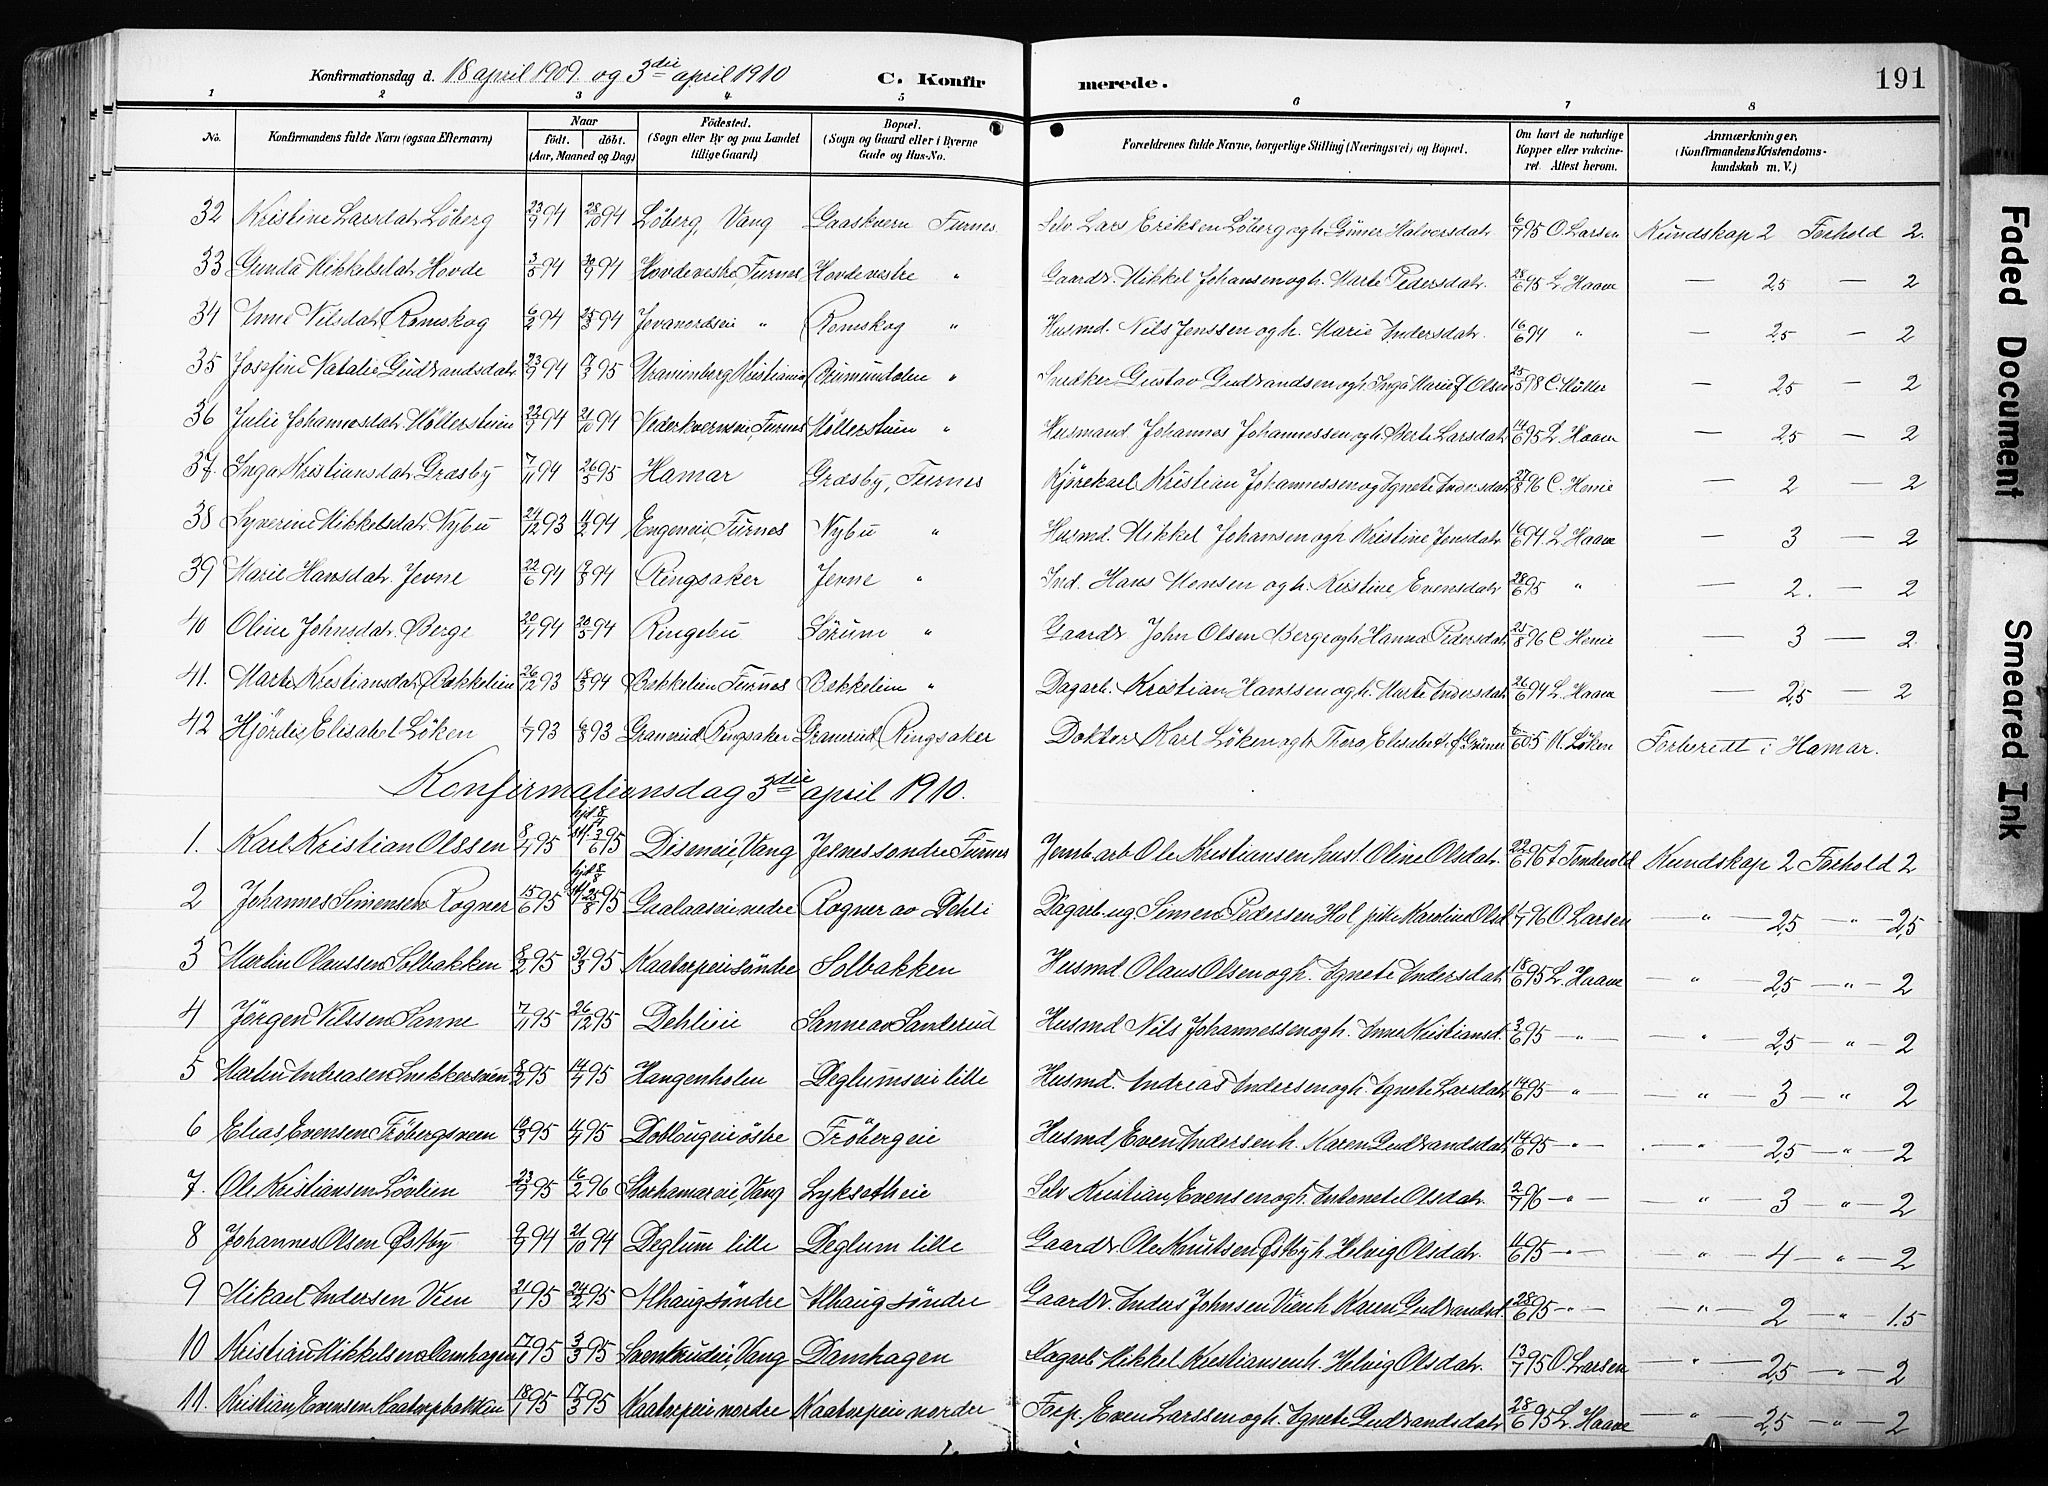 Konfirmationsdag d. 18 april 1909 og 3die april 1910 C. Konfir merede. 191
1 2 3 4 5 6 7 8
No. Konfirmandens fulde Navn (ogsaa Efternavn) Naar födt. döbt. (Aar, Maaned og Dag) Födested. (Sogn eller By og paa Landet tillige Gaard) Bopæl. (Sogn og Gaard eller i Byerne Gade og Hus-No. Forældrenes fulde Navne, borgerlige Stilling (Næringsvei) og Bopæl. Om havt de naturlige Kopper eller vakcineret. Attest herom. Anmærkninger. (Konfirmandens Kristendomskundskab m. V.)
32 Kristine Larsdat. Löberg 23/9 94 28/10 94 Löberg, Vang Gaaskvern Furnes Selv. Lars Eriksen Löberg og h. Guner Halversdat. 6/7 95 O. Larsen Kundskap 2 Forhold 2.
33 Gunda Mikkelsdat. Hovde 3/5 94 94 Hovde vestre, Furnes Hovde vestre " Gaardr. Mikkel Johansen og h. Marte Pedersdat. 28/6 95 L. Haave — 2,5 — 2
34 Anne Nilsdat. Romskog 6/2 94 25/3 94 " Romskog " Husmd. Nils Jenssen og h. Marie Andersdat. 16/6 94 " — 2,5 — 2
35 Josefine Natalie Gudbrandsdat. 23/9 94 17/3 95 Uranienborg Kristiania Brumundalen " Snekker Gustav Gudbrandsen og h. Inga Marie f. Olsen 25/5 98 C. Möller — 2,5 — 2
36 Julie Johannesdat. Möllerstuen 22/9 94 21/10 94 Nederkvernseie, Furnes Möllerstuen " Husmand Johannes Johannessen og h. Berte Larsdat. 14/6 95 L. Haave — 2,5 — 2
37. Inga Kristiansdat. Græsby 7/11 94 26/5 95 Hamar Græsby, Furnes Kjörekarl Kristian Johannessen og Agnete Andersdat. 27/8 96 C. Henie — 2 — 2
38 Syverine Mikkelsdat. Nybu 24/12 93 11/2 94 Engeneie, Furnes Nybu " Husmd. Mikkel Johansen og h. Kristine Jensdat. 16/6 94. L. Haave — 3 — 2
39 Marie Hansdat. Jevne 22/6 94 94 Ringsaker Jevne " Ind. Hans Monsen og h. Kristine Evensdat. 28/6 95 " — 2. — 2
40 Oline Johnsdat. Berge 94 20/5 94 Ringebu Sörum " Gaardr. John Olsen Berge og h. Hanna Pedersdat. 25/8 96 C. Henie — 3 — 2
41. Marte Kristiansdat. Bekkelien 26/12 93 18/3 94 Bekkelien Furnes Bekkelien " Dagarb. Kristian Hanssen og h. Marte Andersdat. 26/6 94 L. Haave — 2,5 — 2
42 Hjördis Elisabet Löken 1/7 93 6/8 93 Granerud Ringsaker Granerud Ringsaker Doktor Karl Löken og h. Thora Elisabet f. Grüner 05 K. Löken Forberedt i Hamar.
Konfirmationsdag 3die april 1910.
1. Karl Kristian Olssen 95 95 Diseneie, Vang Jesnes söndre Furnes Jernb.arb. Ole Kristiansen hust. Oline Olsdat. 22/6 96 Kundskap 2 Forhold 2
2 Johannes Simensen Rogner 15/6 95 25/8 95 nedre Rogner av Dehli Dagarb. ug. Simen Pedersen Hol pike Karoline Olsd. 1/7 96 O. Larsen — " — 2,5 — " — 2,5
3 Martin Olaussen Solbakken 8/2 95 31/3 95 Kaatorpeie söndre Solbakken Husmd. Olaus Olsen og h. Agnete Andersdat. 18/6 95 L. Haave — " — 2,5 — " — 2
4 Jörgen Nilssen Sanne 7/11 95 26/12 95 Dehlieie Sanne av Sanderud Husmd. Nils Johannessen og h. Anne Kristiansd. 3/6 95 — " — — " — 2,5 — " — 2
5 Martin Andreasen Snekkersveen 8/2 95 14/4 95 Hangenholen Deglumseie lille Husmd. Andreas Andersen og h. Agnete Larsdat. 14/6 95 — " — — " — 3 — " 2
6 Elias Evensen Fröbergsveen 95 95 Doblougeie östre Fröbergeie Husmd. Even Andersen h. Karen Gudbrandsdat. 14/6 95 — " — — " — 2,5 — " — 2
7. Ole Kristiansen Lövlien 23/9 95 16/2 96 Storhamareie, Vang Lyksetheie Selv. Kristian Evensen og h. Antonete Olsdat. 2/7 96 — " — — " — 3 — " — 2
8 Johannes Olsen Østby 9/9 94 21/10 94 Deglum lille Deglum lille Gaardr. Ole Knutsen Østby h. Helvig Olsdat. 95 — " — — " — 4 — " — 2
9 Mikael Andersen Veen 21/1 95 24/2 95 Alhaug söndre Alhaug söndre Gaardr. Anders Johnsen Vien h. Karen Gudbrandsd. 28/6 95 — " — — " — 2 — " — 1.5
10 Kristian Mikkelsen Damhagen 17/1 95 3/3 95 Svenkrudeie, Vang Damhagen Dagarb. Mikkel Kristiansen h. Helvig Olsdat. 13/7 95 O. Larsen — " — 2,5 — " — 2
11. Kristian Evensen Kaatorpbakken 18/1 95 17/3 95 Kaatorpeie nordre Kaatorpeie nordre Forp. Even Larssen og h. Agnete Gudbrandsdat. 28/6 95 L. Haave — " — 2,5 — " — 2
Faded Document
Smeared Ink